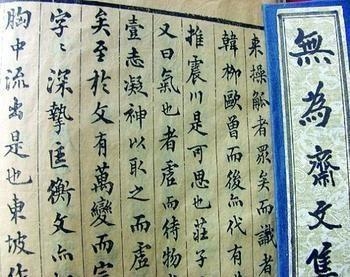 無為齋文集
來操觚者眾矣而識者
韓柳歐曾而後代有
推震川是可思也莊子
又曰氣也者虛而待物
壹志凝神以取之而虛
矣至於文有萬變而宗
字字深摯匡衡文
胸中流出是也東坡作